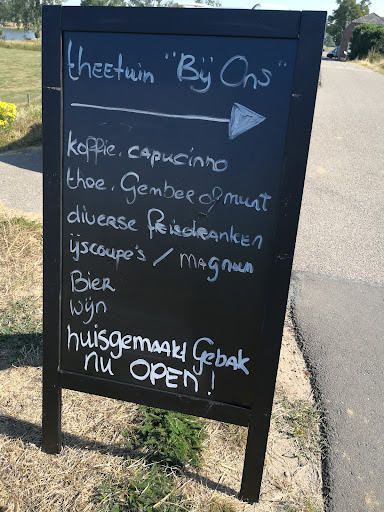 theetuin "Bij Ons"
koffie. capucinno
thee. Gember of munt
diverse frisdranken
ijscoupe's / magnum
Bier
wijn
huisgemaakt Gebak
nu OPEN!